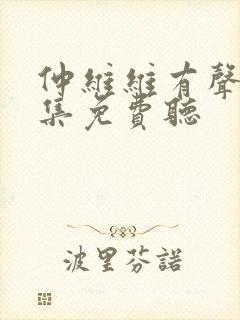 仲維維有聲
集免費聽
波里芬諾